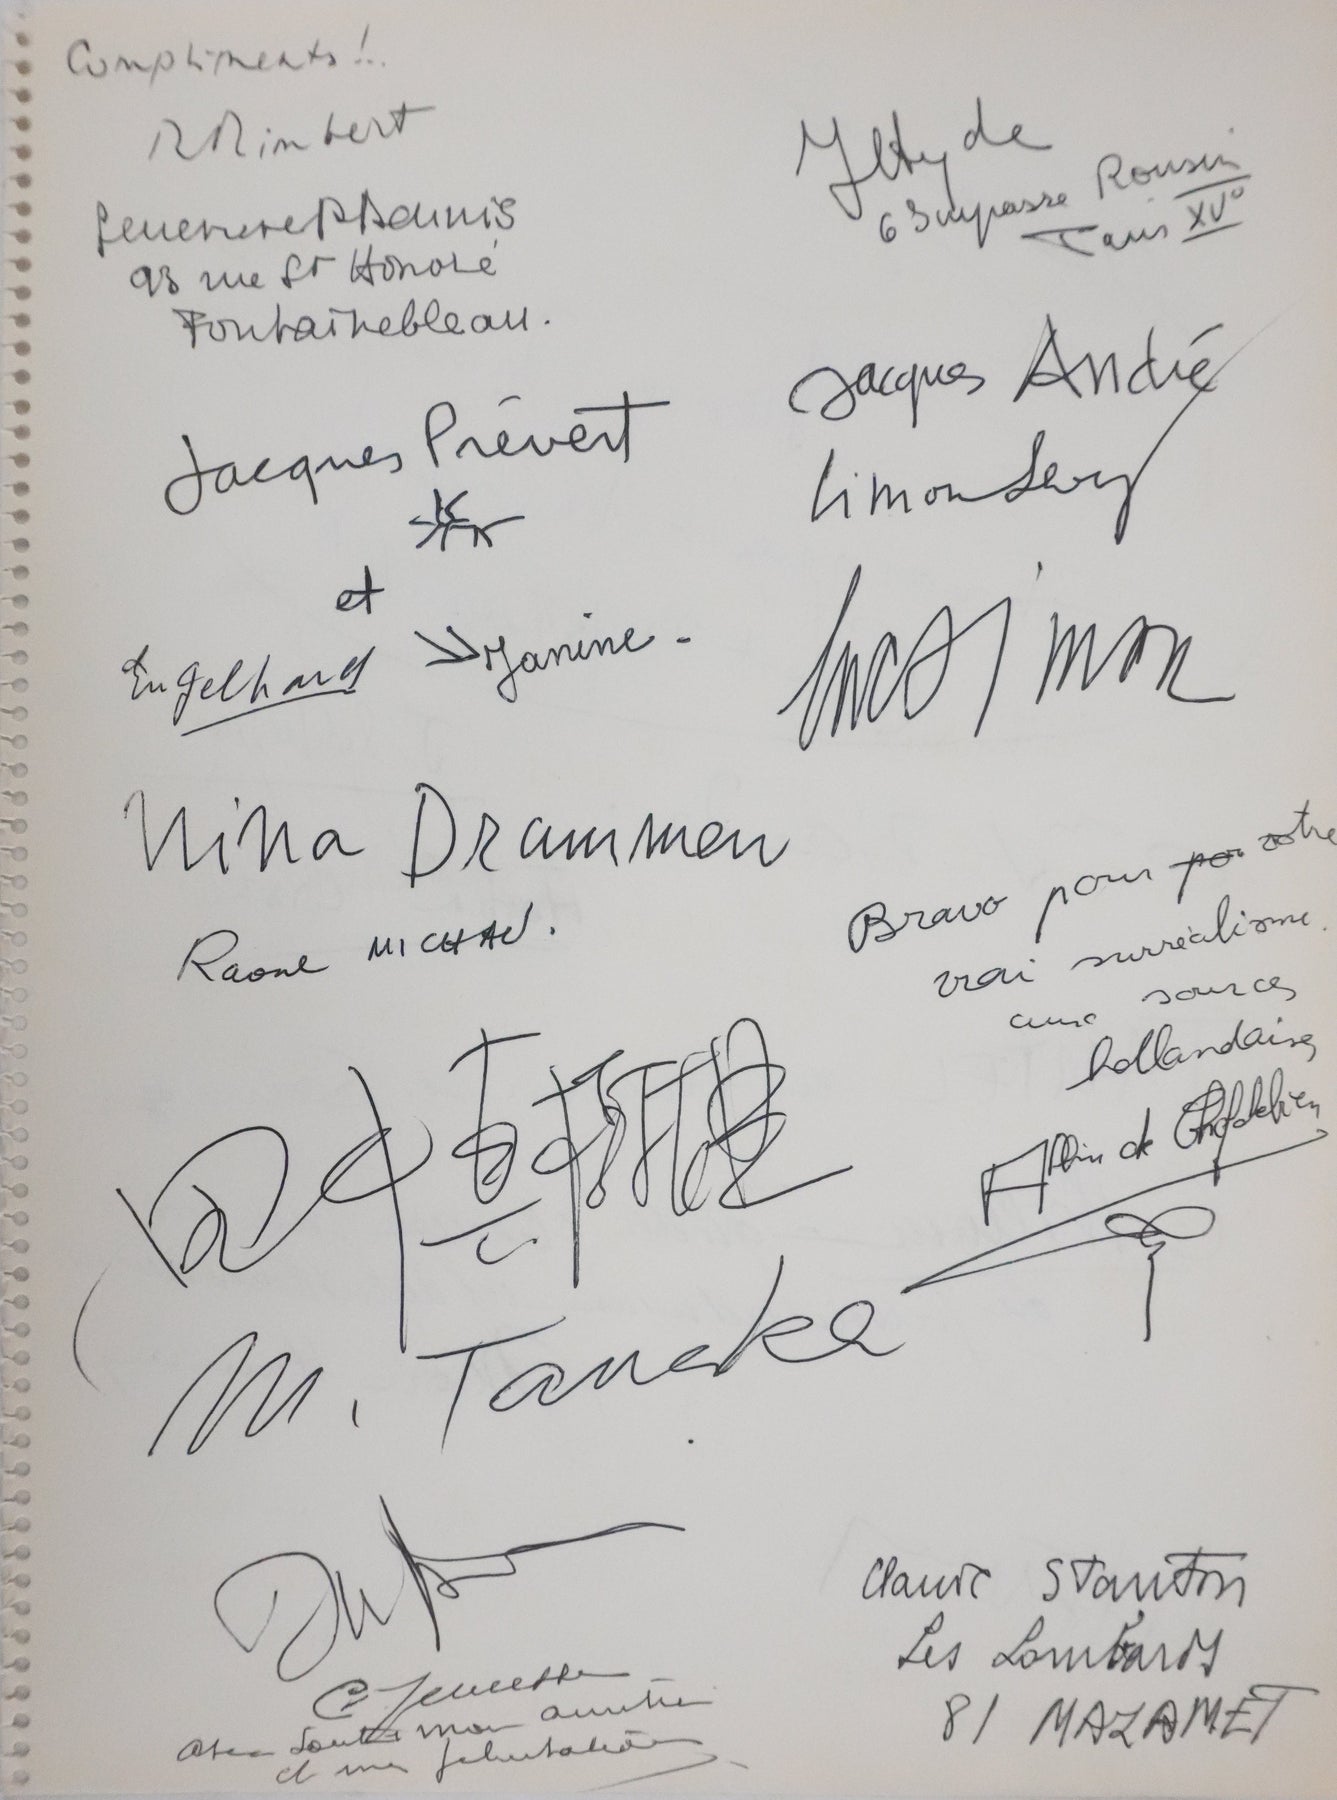 Compliments!..
R Rimbert
93 rue St Honoré
Fontainebleau.
Jacques Prévert
et
Engelhard
Janine -
Nina Drammen
Raone MICHAU.
田中
M. Tanaka
avec toute mon amitié
et mes félicitations
6 Impasse Ronsin
Paris XVº
Jacques André
Simon Levy
Luc Simon
Bravo pour votre
vrai surréalisme
aux sources
hollandaises
Alin de
Claude Stanton
Les Lombards
81 MAZAMET